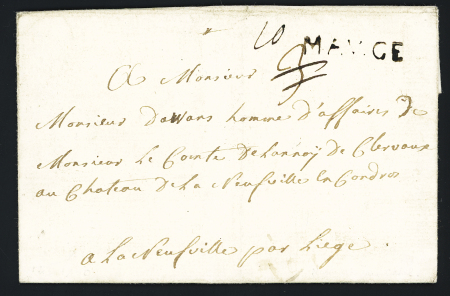 10 MAVGE
A Monsieur
Monsieur dawans homme d'affaires de
Monsieur Le Comte de Lannoÿ de Clervaux
au Chateau de La Neufville En Condros
a La Neufville par Liege.